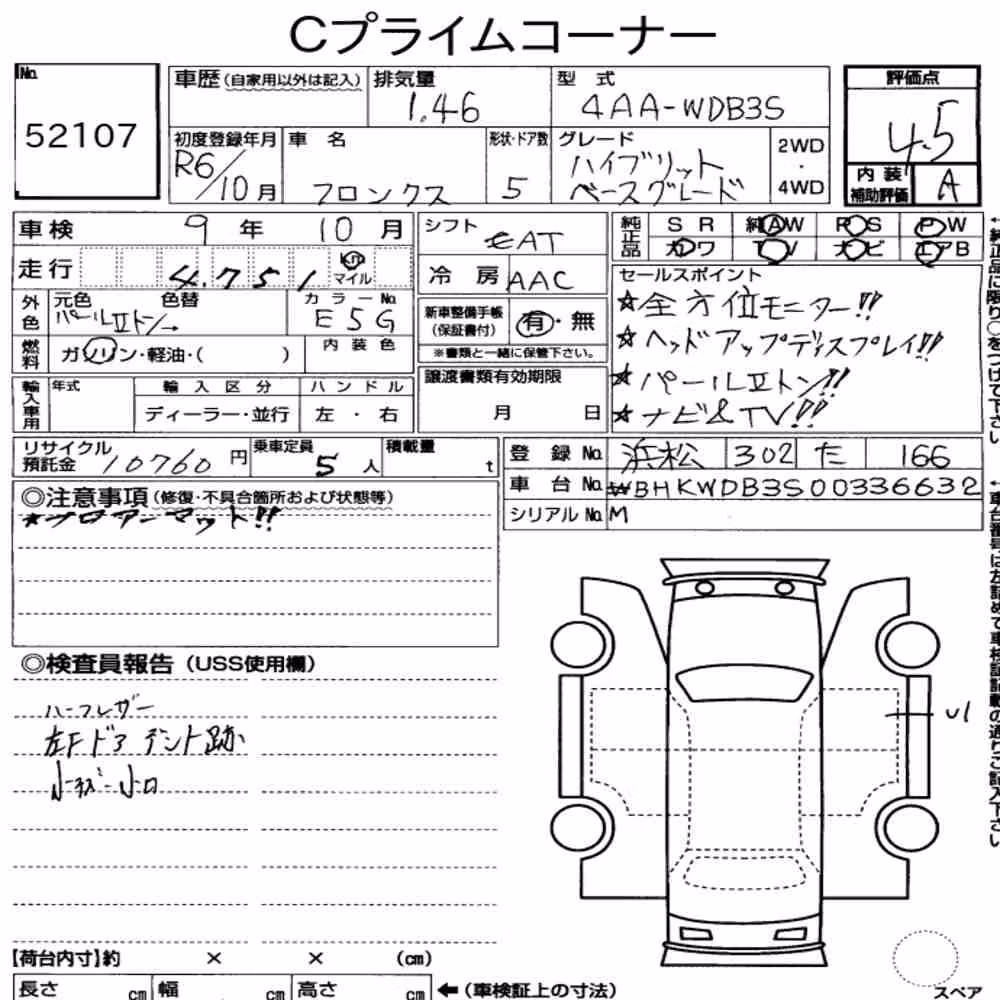 Cプライムコーナー
No.
52107
車歴(自家用以外は記入)
排気量
1.46
型 式
4AA-WDB3S
評価点
4.5
初度登録年月
R6/10月
車 名
フロンクス
形状・ドア数
5
グレード
ハイブリット
ベースグレード
2WD
・
4WD
内装
補助評価
A
車検 9年 10月
シフト
EAT
純正品
SR 純AW PS PW
カワ TV ナビ エアB
走行 4,751 km マイル
冷房 AAC
セールスポイント
☆全方位モニター!!
☆ヘッドアップディスプレイ!!
☆パールⅡトン!!
☆ナビ&TV!!
外色
元色 色替
パールⅡトン→
カラーNo.
E5G
新車整備手帳
(保証書付)
有・無
※書類と一緒に保管下さい。
燃料
ガソリン・軽油・( )
内装色
輸入車用
年式
輸入区分
ディーラー・並行
ハンドル
左・右
譲渡書類有効期限
月 日
リサイクル
預託金 10760円
乗車定員
5人
積載量
t
登録No. 浜松 302 た 166
車台No. WBHKWDB3S00336632
シリアルNo. M
◎注意事項(修復・不具合箇所および状態等)
★フロアーマット!!
◎検査員報告(USS使用欄)
ハーフレザー
左Fドア デント跡
小キズ・小凹
U1
【荷台内寸】約 × × (cm)
長さ cm
幅 cm
高さ cm
←(車検証上の寸法)
スペア
←純正品に限り○をつけて下さい
←車台番号は左詰めで車検証記載の通りご記入下さい